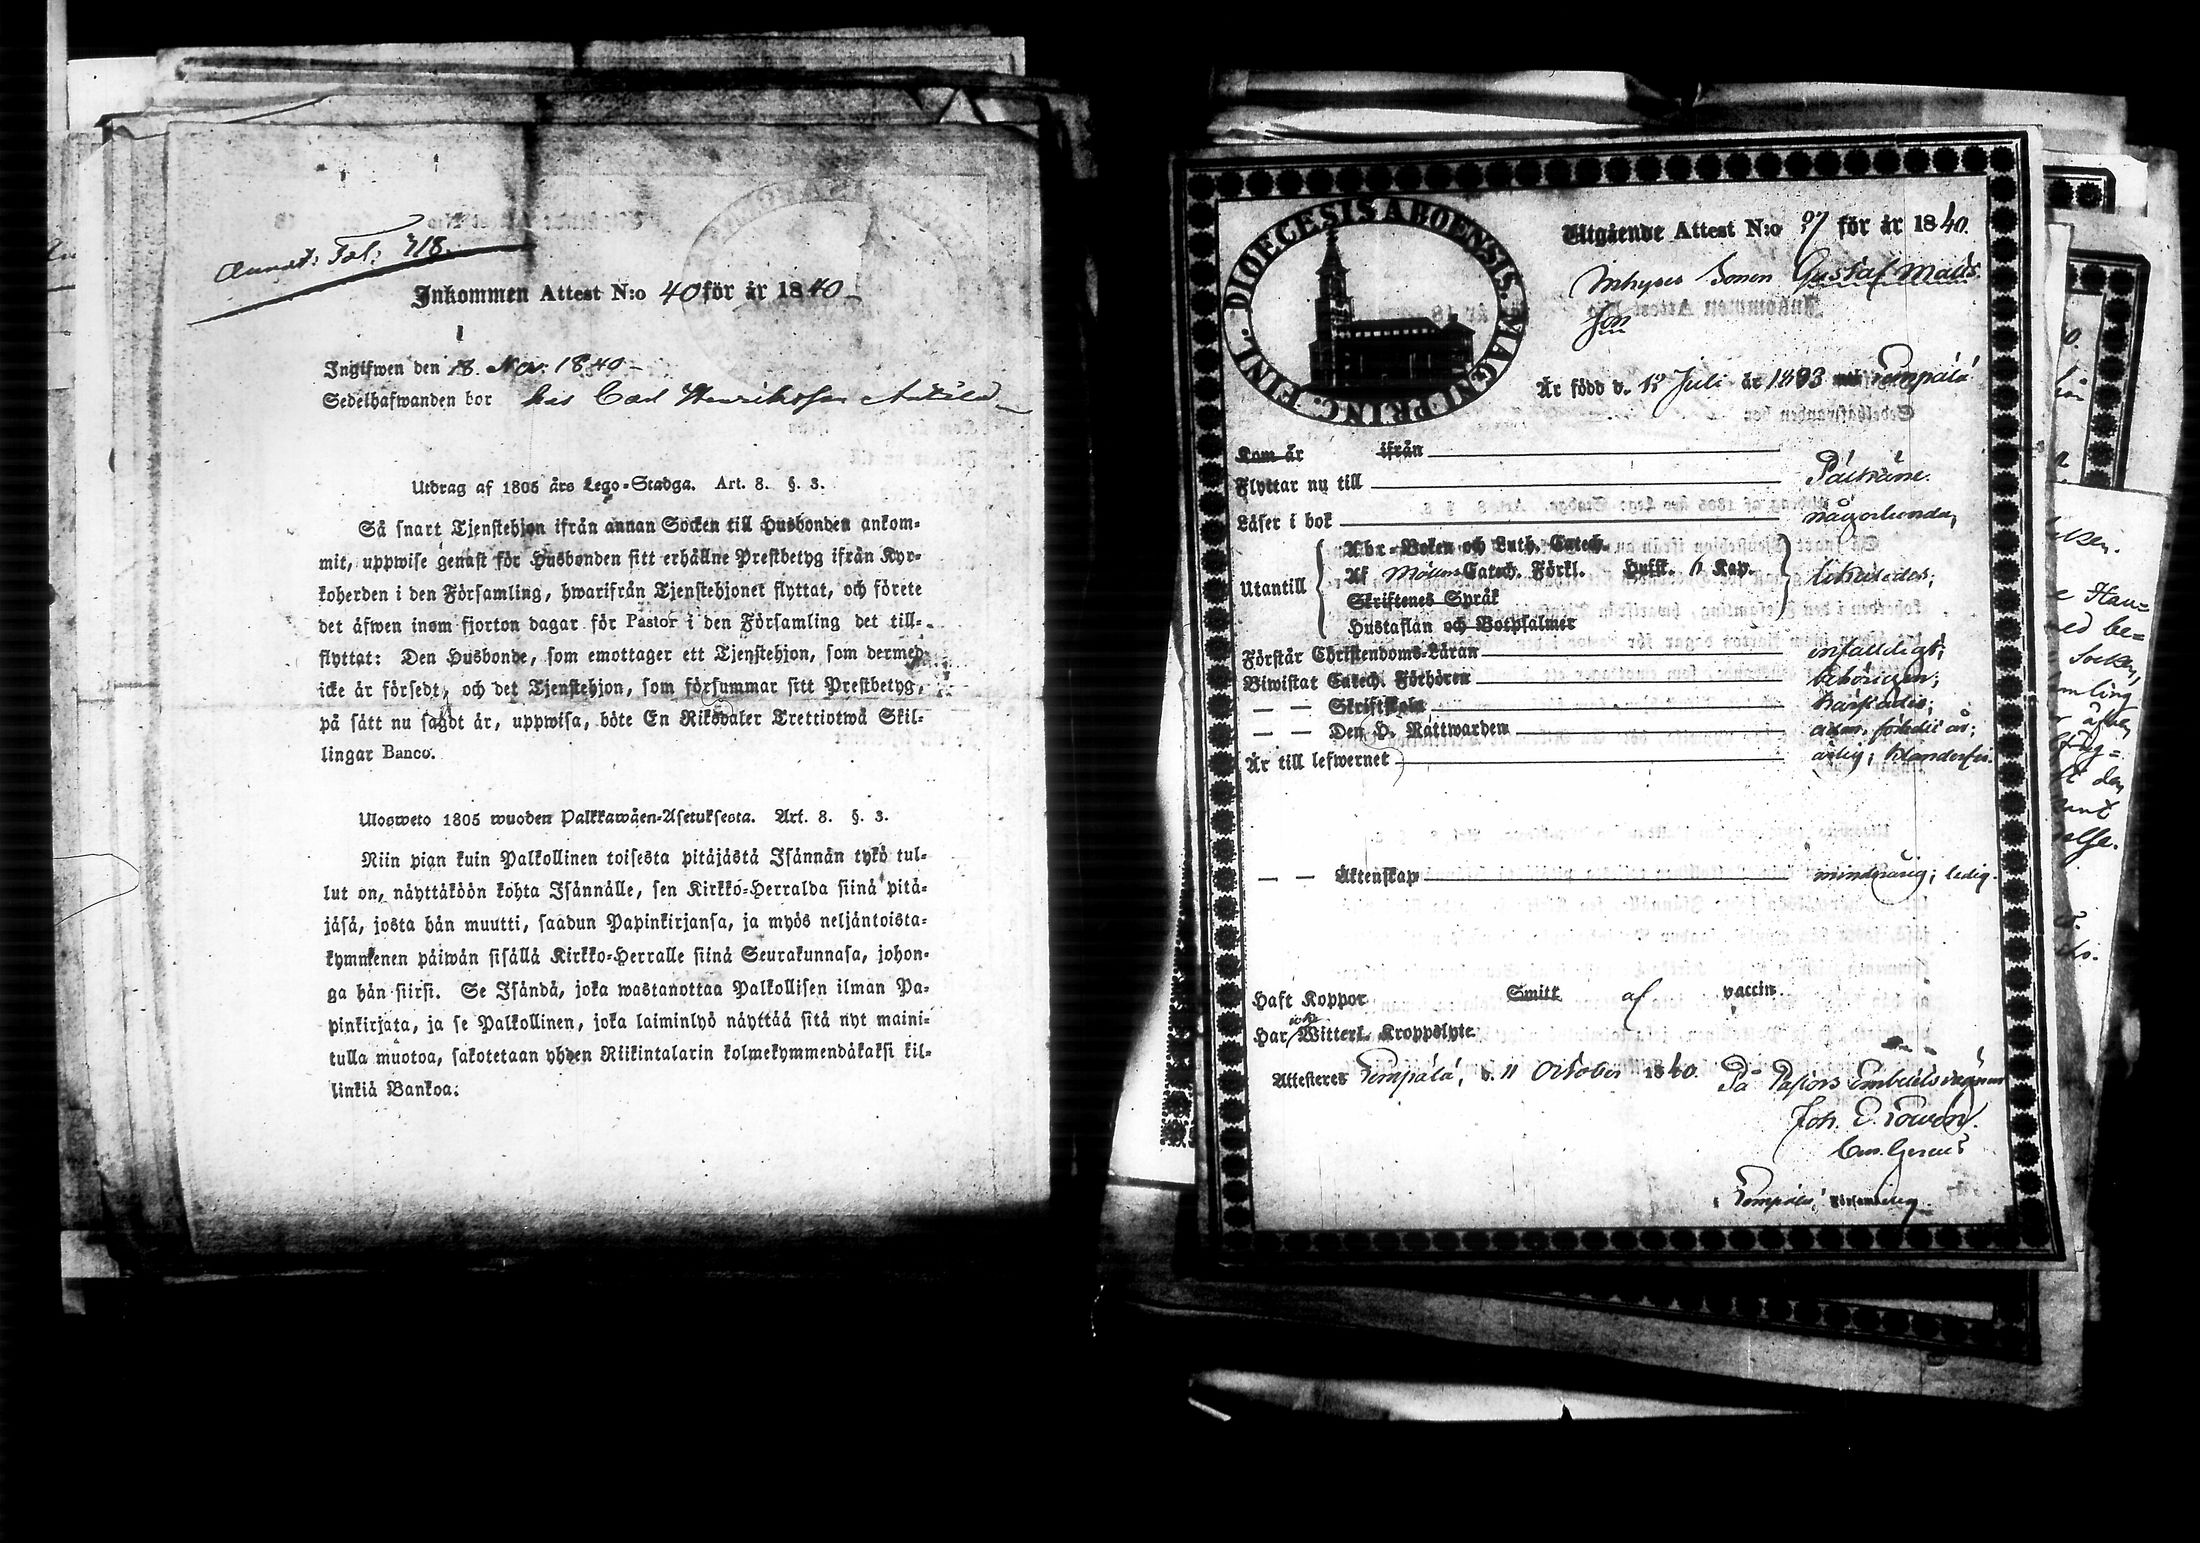 Annot: Fol: 718.
Inkommen Attest N:o 40 för år 1840
Ingifwen den 18. Nov: 1840
Sedelhafwanden bor hos Carl Henriksson
Utdrag af 1805 års Lego-Stadga. Art. 8. §. 3.
Så snart Tjenstehjon ifrån annan Socken till Husbonden ankom-
mit, uppwise genast för Husbonden sitt erhållne Prestbetyg ifrån Kyr-
koherden i den Församling, hwarifrån Tjenstehjonet flyttat, och förete
det äfwen inom fjorton dagar för Pastor i den Församling det till-
flyttat: Den Husbonde, som emottager ett Tjenstehjon, som dermed
icke är försedt, och det Tjenstehjon, som försummar sitt Prestbetyg,
på sätt nu sagdt är, uppwisa, böte En Riksdaler Trettiotwå Skil-
lingar Banco.
Ulosweto 1805 wuoden Palkkawäen-Asetuksesta. Art. 8. §. 3.
Niin pian kuin Palkollinen toisesta pitäjästä Isännän tykö tul-
lut on, näyttäköön kohta Isännälle, sen Kirkko-Herralda siinä pitä-
jäsä, josta hän muutti, saadun Papinkirjansa, ja myös neljäntoista-
kymmenen päiwän sisällä Kirkko-Herralle siinä Seurakunnasa, johon-
ga hän siirsi. Se Isändä, joka wastanottaa Palkollisen ilman Pa-
pinkirjata, ja se Palkollinen, joka laiminlyö näyttää sitä nyt maini-
tulla muotoa, sakotetaan yhden Riikintalarin kolmekymmendäkaksi kil-
linkiä Bankoa.
FINL. DIOECESIS ABOENSIS. MAGNI PRINC.
Utgående Attest N:o 97 för år 1840.
Inhyses Sonen Gustaf Mats
son
Är född d. 12 Juli år 1823 Lempälä
Kom år ifrån
Flyttar nu till Pälkäne.
Läser i bok någorlunda,
Abc-Boken och Luth. Catech.
Utantill Af Möllers Catech. Förkl. Hufst. 6 Kap. likaledes;
Skriftenes Språk
Hustaflan och Botpsalmer
Förstår Christendoms-Läran enfalldigt;
Biwistat Catech. Förhören behörigen;
— — Skriftskola härstädes;
— — Den H. Nattwarden
Är till lefwernet ärlig;
— — Äktenskap minderårig; ledig.
Haft Koppor Smitt af vaccin.
Har icke Witterl. Kroppslyte.
Attesteras Lempälä, d. 11 October 1840. På Pastors Embetets wägnar
Joh. E.
Lempälä Församling